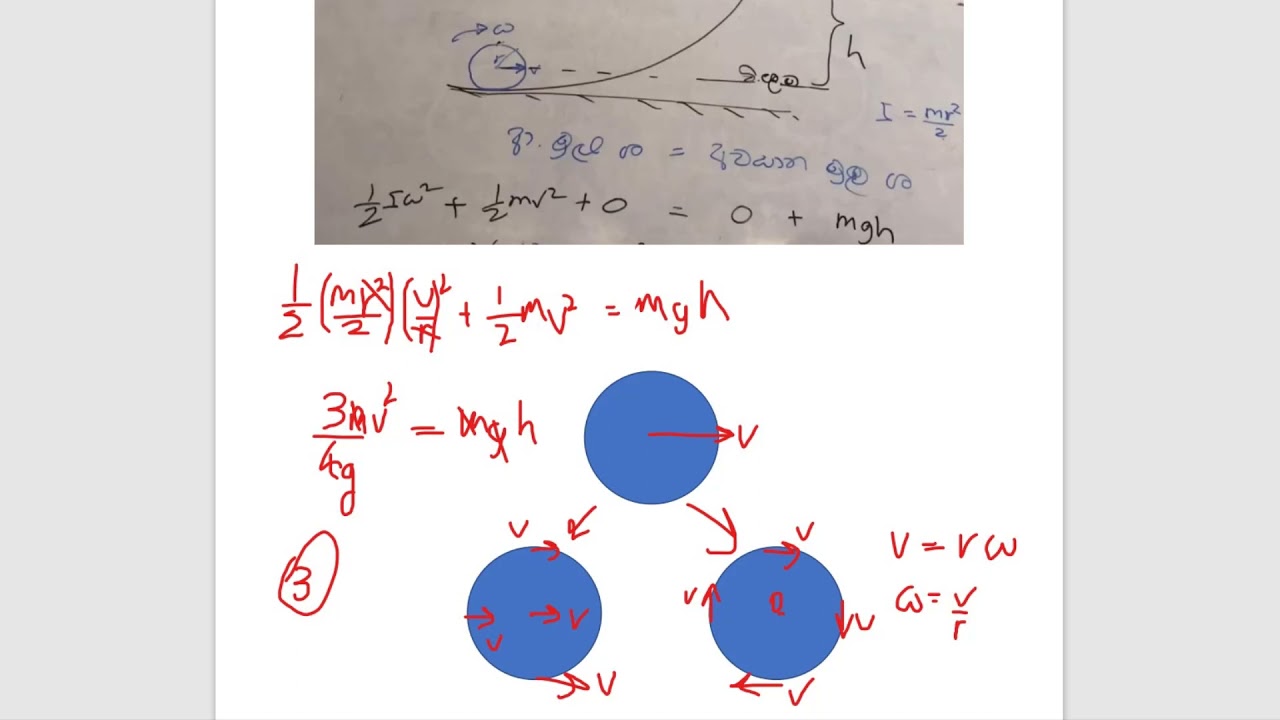 ω
r
v
h
I = mr²/2
ආ. මුල ශ = අවසාන මුල ශ
1/2 Iω² + 1/2 mv² + 0 = 0 + mgh
1/2 (mr²/2)(v/r)² + 1/2 mv² = mgh
3mv²/4g = mgh
v
3
v
v
v
v
v
v
v
v
v = rω
ω = v/r